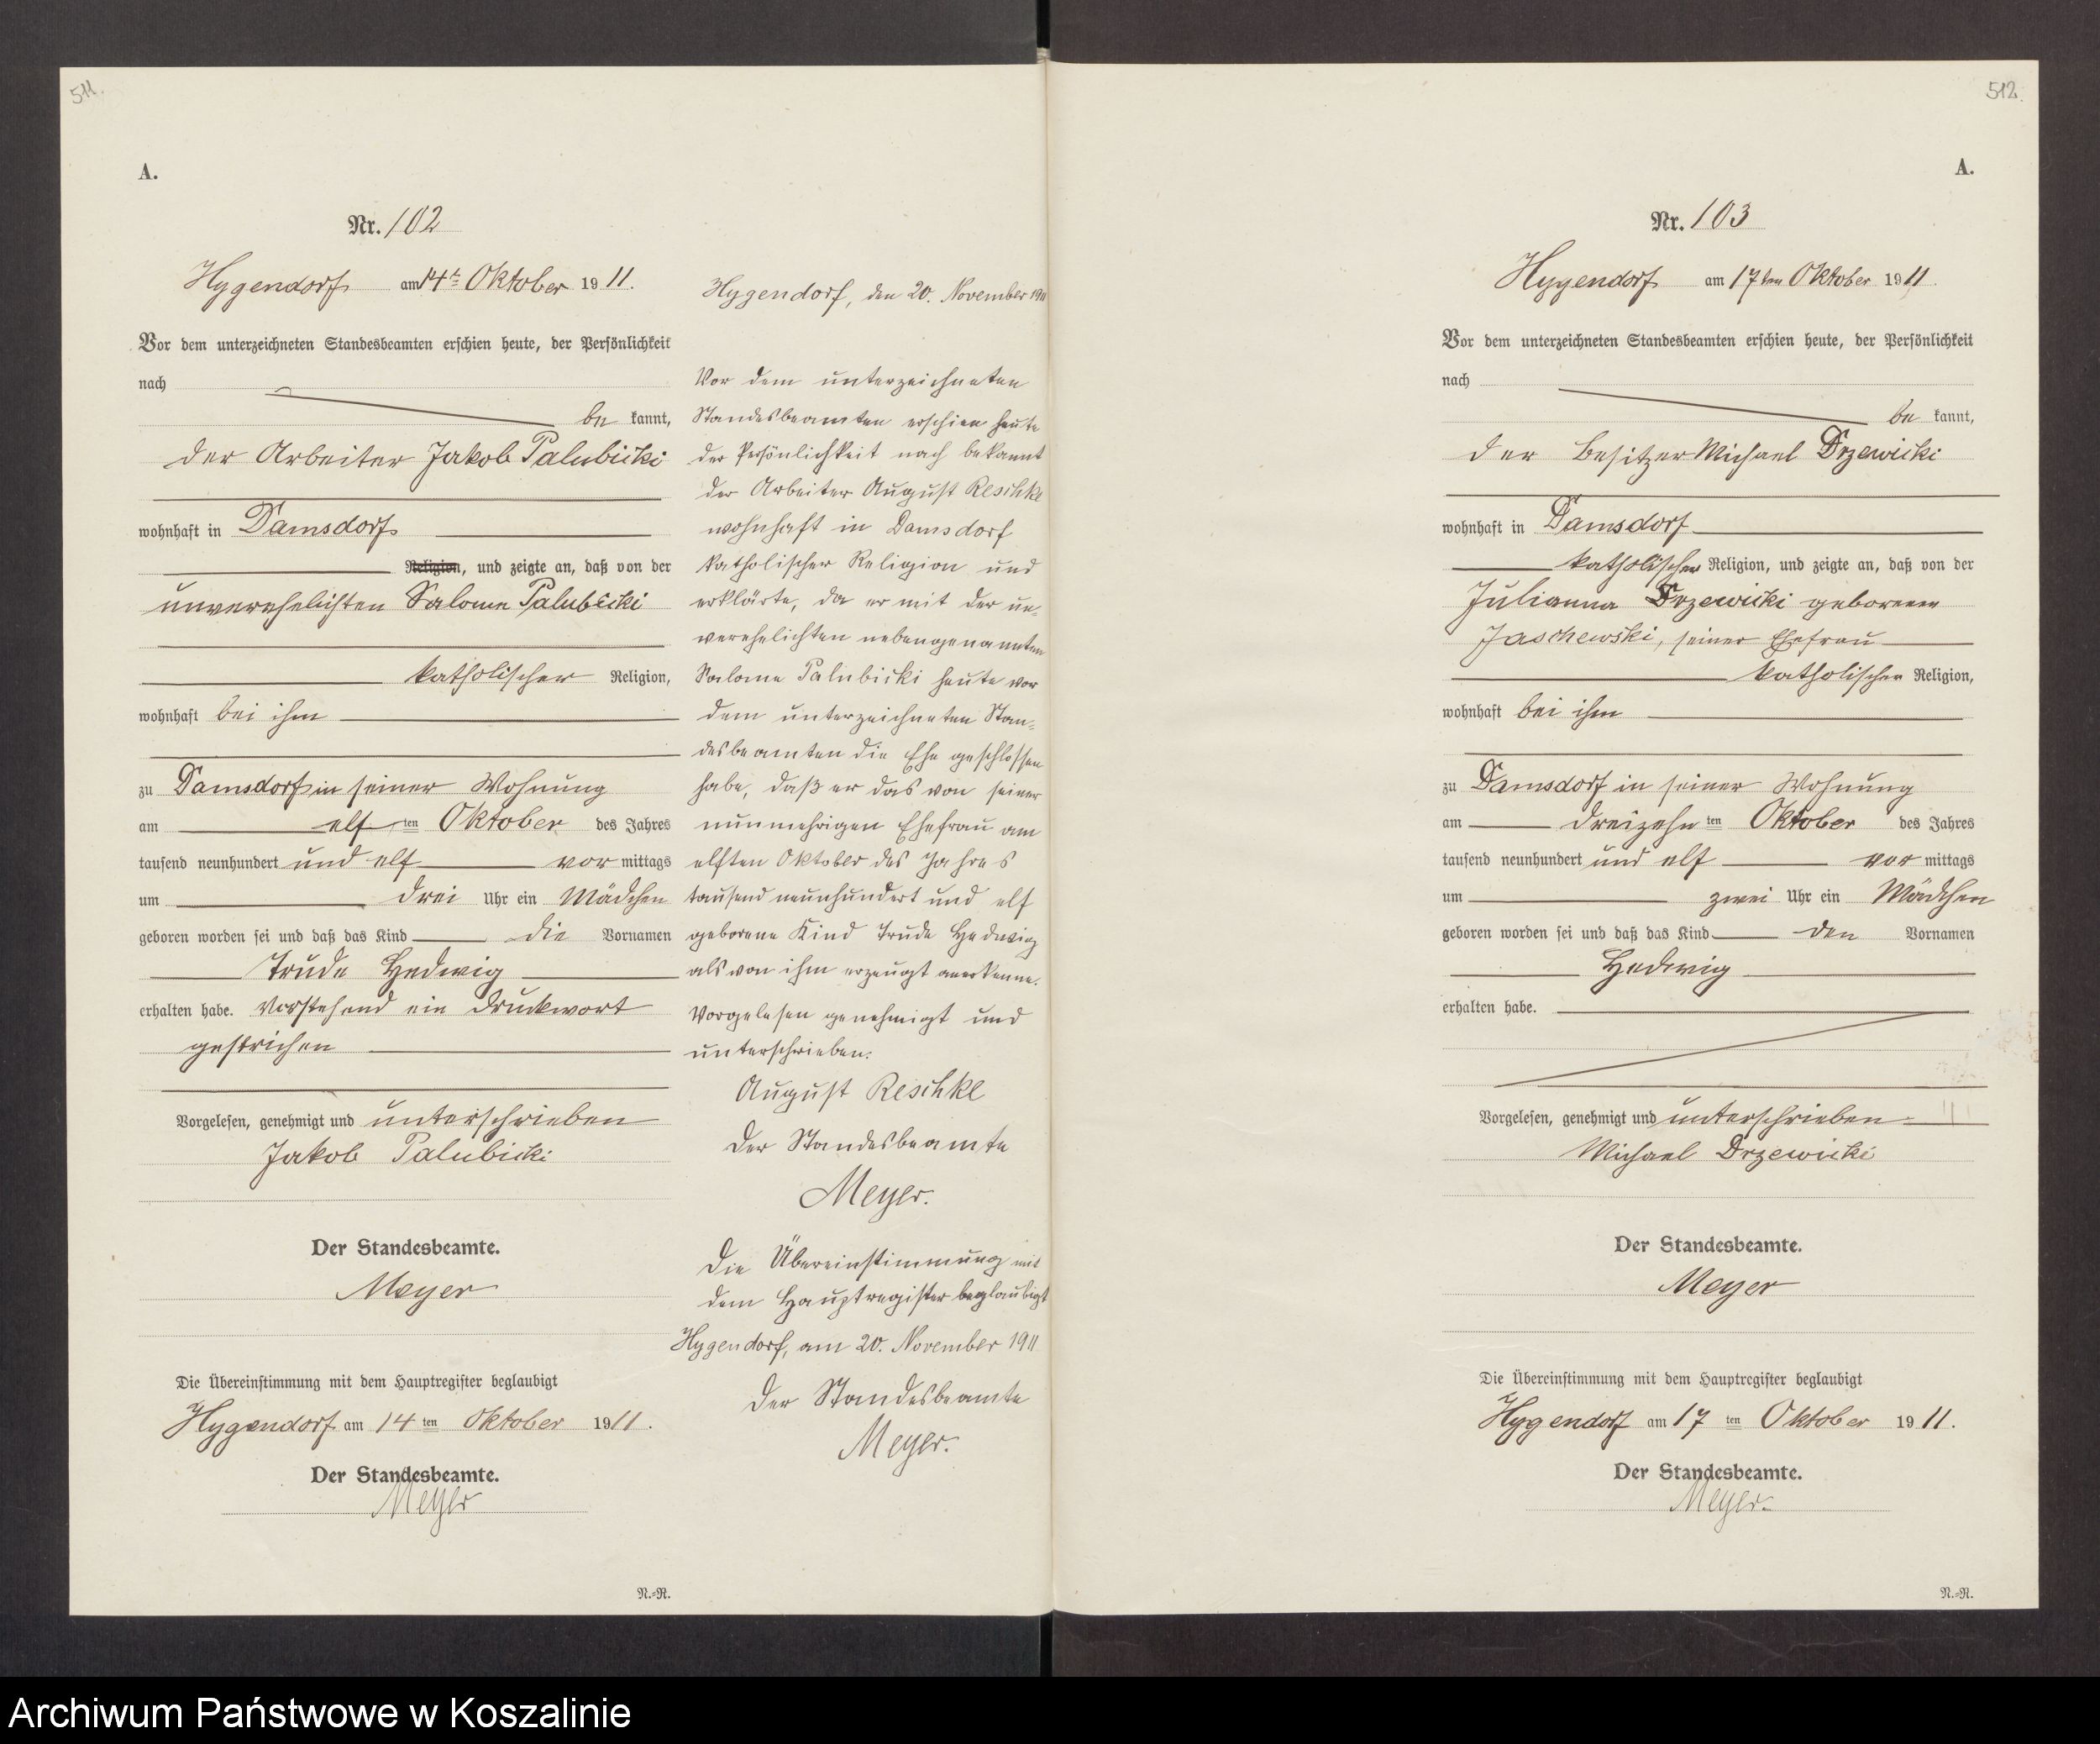 511.
A.
Nr. 102
Hygendorf am 14ten Oktober 1911.
Vor dem unterzeichneten Standesbeamten erschien heute, der Persönlichkeit
nach
be kannt,
der Arbeiter Jakob Palubicki
wohnhaft in Damsdorf
Religion, und zeigte an, daß von der
unverehelichten Salome Palubicki
katholischer Religion,
wohnhaft bei ihm
zu Damsdorf in seiner Wohnung
am elf ten Oktober des Jahres
tausend neunhundert und elf vor mittags
um drei Uhr ein Mädchen
geboren worden sei und daß das Kind die Vornamen
Trude Hedwig
erhalten habe. Vorstehend ein Druckwort
gestrichen
Vorgelesen, genehmigt und unterschrieben
Jakob Palubicki
Der Standesbeamte.
Meyer
Die Übereinstimmung mit dem Hauptregister beglaubigt
Hygendorf am 14 ten Oktober 1911.
Der Standesbeamte.
Meyer
N.=R.
Hygendorf, den 20. November 1911
Vor dem unterzeichneten
Standesbeamten erschien heute
der Persönlichkeit nach bekannt
der Arbeiter August Reschke
wohnhaft in Damsdorf
katholischer Religion und
erklärte, da er mit der un=
verehelichten nebengenannten
Salome Palubicki heute vor
dem unterzeichneten Stan=
desbeamten die Ehe geschlossen
habe, daß er das von seiner
nunmehrigen Ehefrau am
elften Oktober des Jahres
tausend neunhundert und elf
geborene Kind Trude Hedwig
als von ihm erzeugt anerkenne.
Vorgelesen genehmigt und
unterschrieben.
August Reschke
Der Standesbeamte
Meyer.
Die Übereinstimmung mit
dem Hauptregister beglaubigt
Hygendorf, am 20. November 1911
Der Standesbeamte
Meyer.
512.
A.
Nr. 103
Hygendorf am 17ten Oktober 1911.
Vor dem unterzeichneten Standesbeamten erschien heute, der Persönlichkeit
nach
be kannt,
der Besitzer Michael Drzewicki
wohnhaft in Damsdorf
katholischer Religion, und zeigte an, daß von der
Julianna Drzewicki geborenen
Jaschewski, seiner Ehefrau
katholischer Religion,
wohnhaft bei ihm
zu Damsdorf in seiner Wohnung
am dreizehn ten Oktober des Jahres
tausend neunhundert und elf vor mittags
um zwei Uhr ein Mädchen
geboren worden sei und daß das Kind den Vornamen
Hedwig
erhalten habe.
Vorgelesen, genehmigt und unterschrieben
Michael Drzewicki
Der Standesbeamte.
Meyer
Die Übereinstimmung mit dem Hauptregister beglaubigt
Hygendorf am 17 ten Oktober 1911.
Der Standesbeamte.
Meyer.
N.=R.
Archiwum Państwowe w Koszalinie